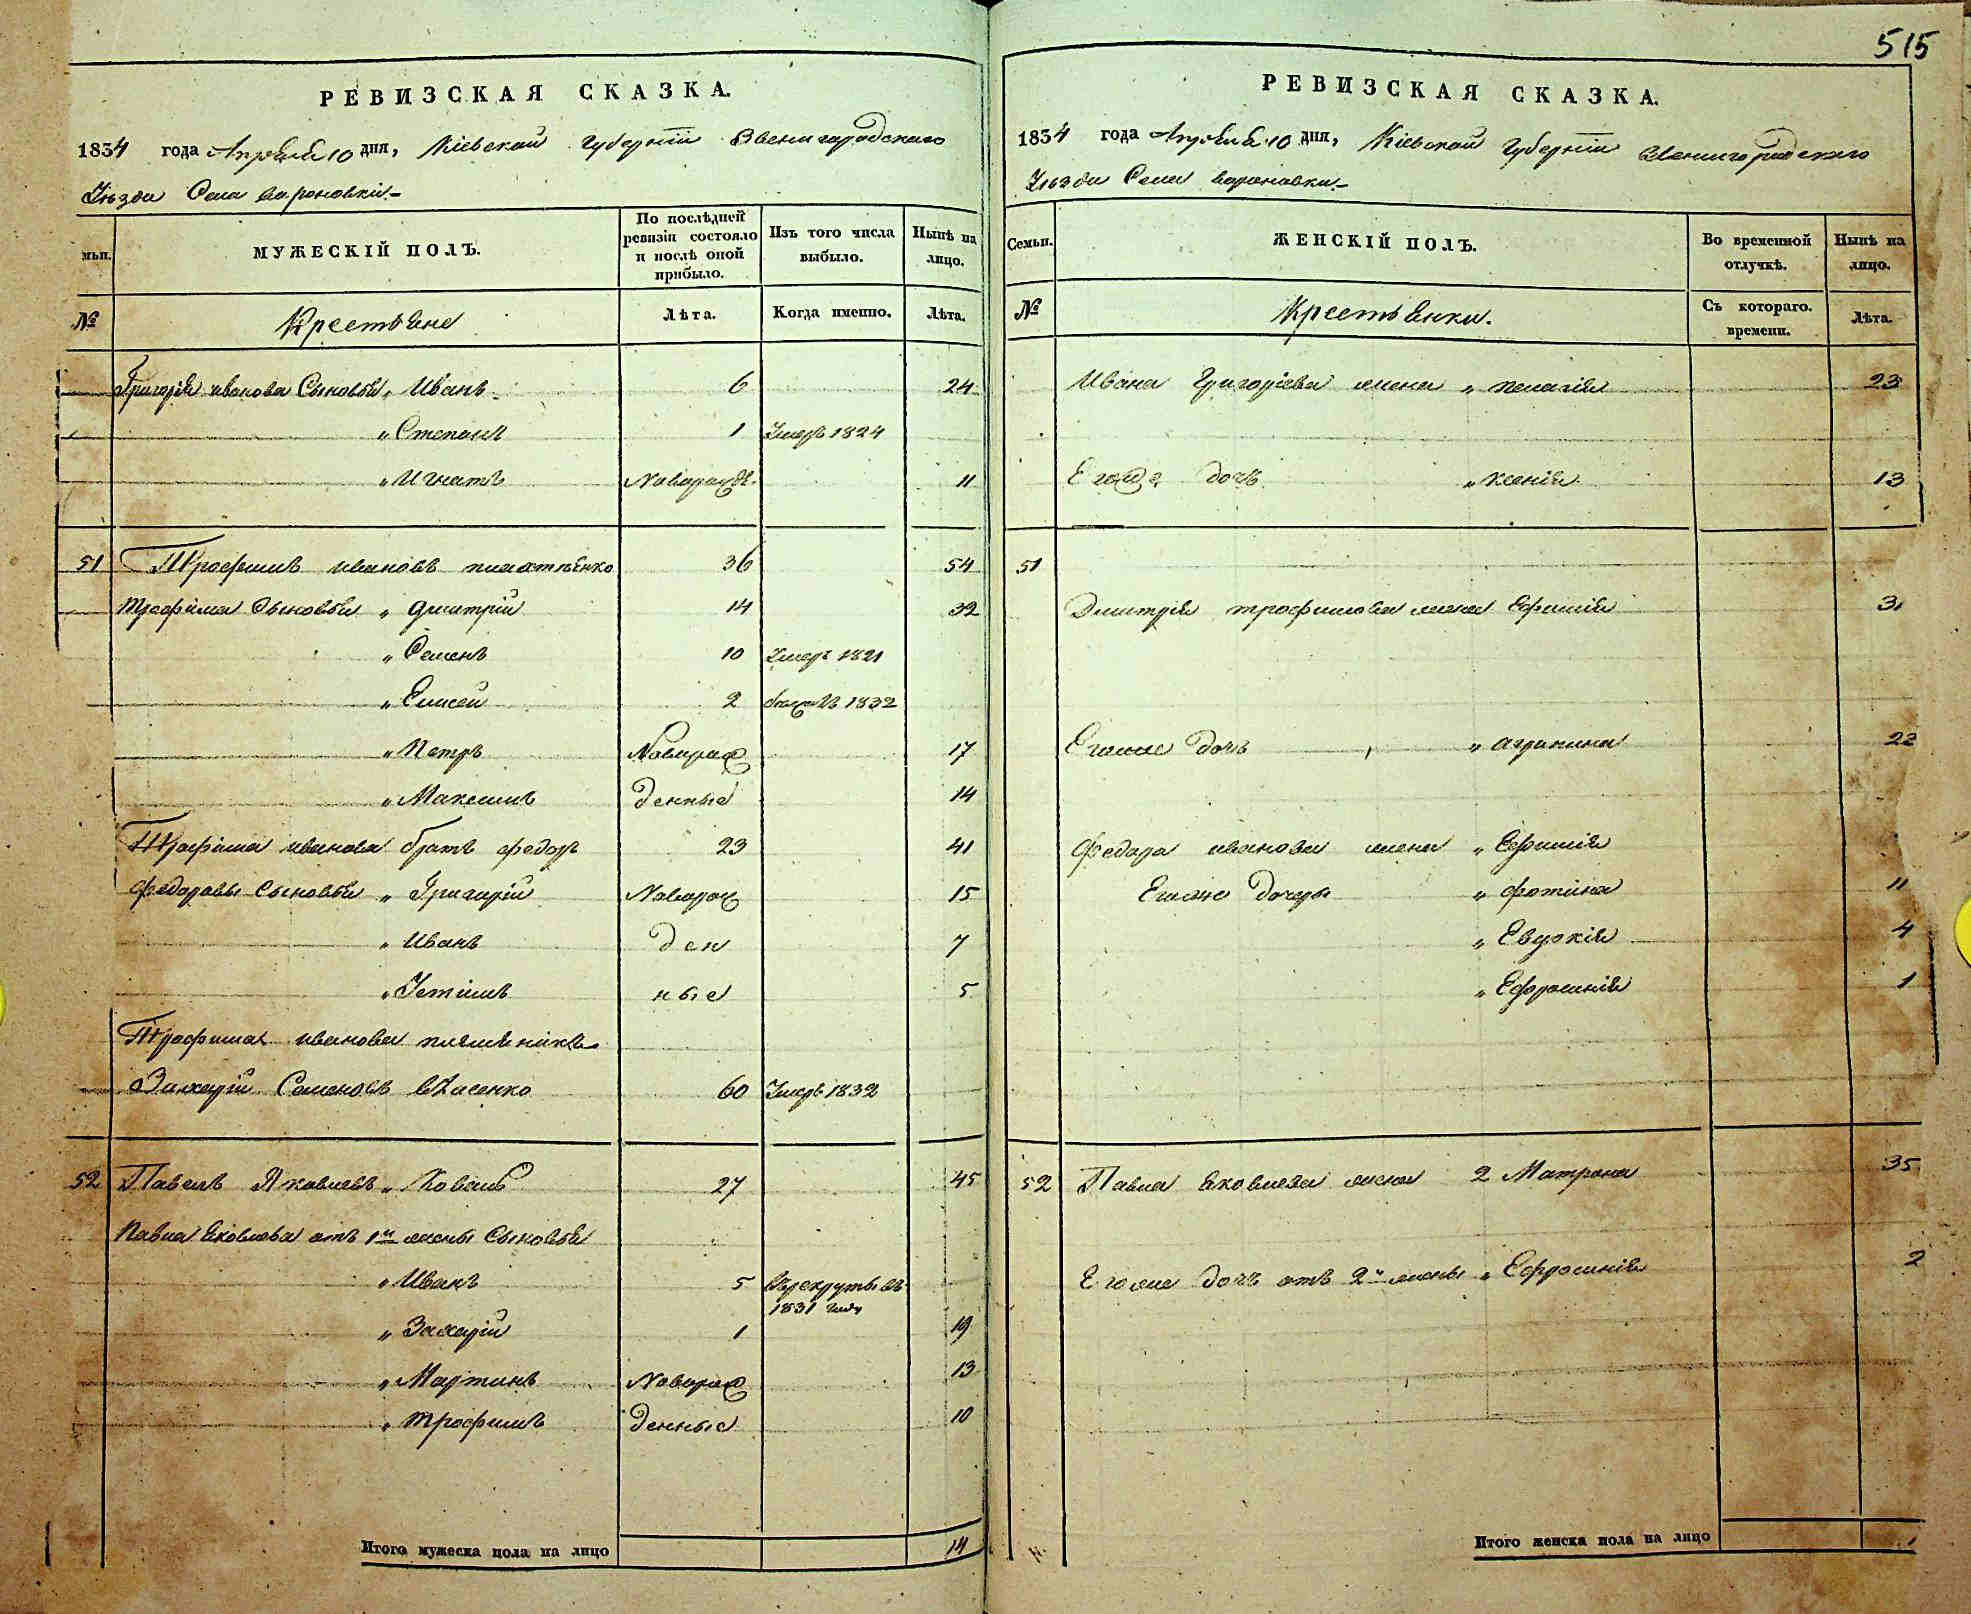 515
РЕВИЗСКАЯ СКАЗКА.
1834 года Апреля 10 дня, Кіевской Губерніи Звенигородского
Уезда Села Вороновки.
мьи.
МУЖЕСКІЙ ПОЛЪ.
По послѣдней ревизіи состояло и послѣ оной прибыло.
Изъ того числа выбыло.
Нынѣ на лицо.
№
Крестьяне
Лѣта.
Когда именно.
Лѣта.
Григорія иванова Сыновья „ Иванъ 6 24
„ Степанъ 1 Умеръ 1824
„ Игнатъ Новорожд. 11
51 Трофимъ ивановъ 36 54
Трофима Сыновья „ Дмитрій 14 32
„ Семенъ 10 Умеръ 1821
„ Елисей 2 1832
„ Петръ Новорож 17
„ Максимъ денные 14
Трофима иванова братъ федоръ 23 41
федоровы Сыновья „ Григорій Новорож 15
„ Иванъ ден 7
„ Устимъ ные 5
Трофима иванова племѣникъ
Захарій Семеновъ власенко 60 Умеръ 1832
52 Павелъ Яковлевъ „ Коваль 27 45
Павла Яковлева отъ 1й жены Сыновья
„ Иванъ 5 в рекруты въ
1831 году
„ Захарій 1 19
„ Мартинъ Новорож 13
„ Трофимъ денные 10
Итого мужеска пола на лицо 14
РЕВИЗСКАЯ СКАЗКА.
1834 года Апреля 10 дня, Кіевской Губерніи Звенигородского
Уезда Села Вороновки.
Семьи.
ЖЕНСКІЙ ПОЛЪ.
Во временной отлучкѣ.
Нынѣ на лицо.
№
Крестьянки.
Съ котораго. времени.
Лѣта.
Ивана Григоріева жена „ пелагія 23
Егожъ дочь „ ксенія 13
51
Дмитрія трофимова жена Ефимія 31
Егоже дочь „ агрипина 22
Федора иванова жена „ Ефимія
Егоже дочери „ фотина 11
„ Евдокія 4
„ Ефросинія 1
52 Павла Яковлева жена 2 Матрона 35
Егоже дочь отъ 2й жены „ Ефросинія 2
Итого женска пола на лицо